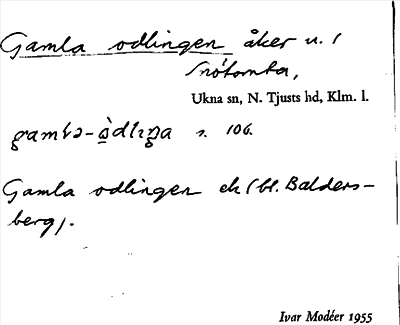 Gamla odlingen åker u. /
Snötomta,
Ukna sn, N. Tjusts hd, Klm. l.
gamla-òdlıŋa s. 106.
Gamla odlingen ek (bl. Balders-
berg).
Ivar Modéer 1955